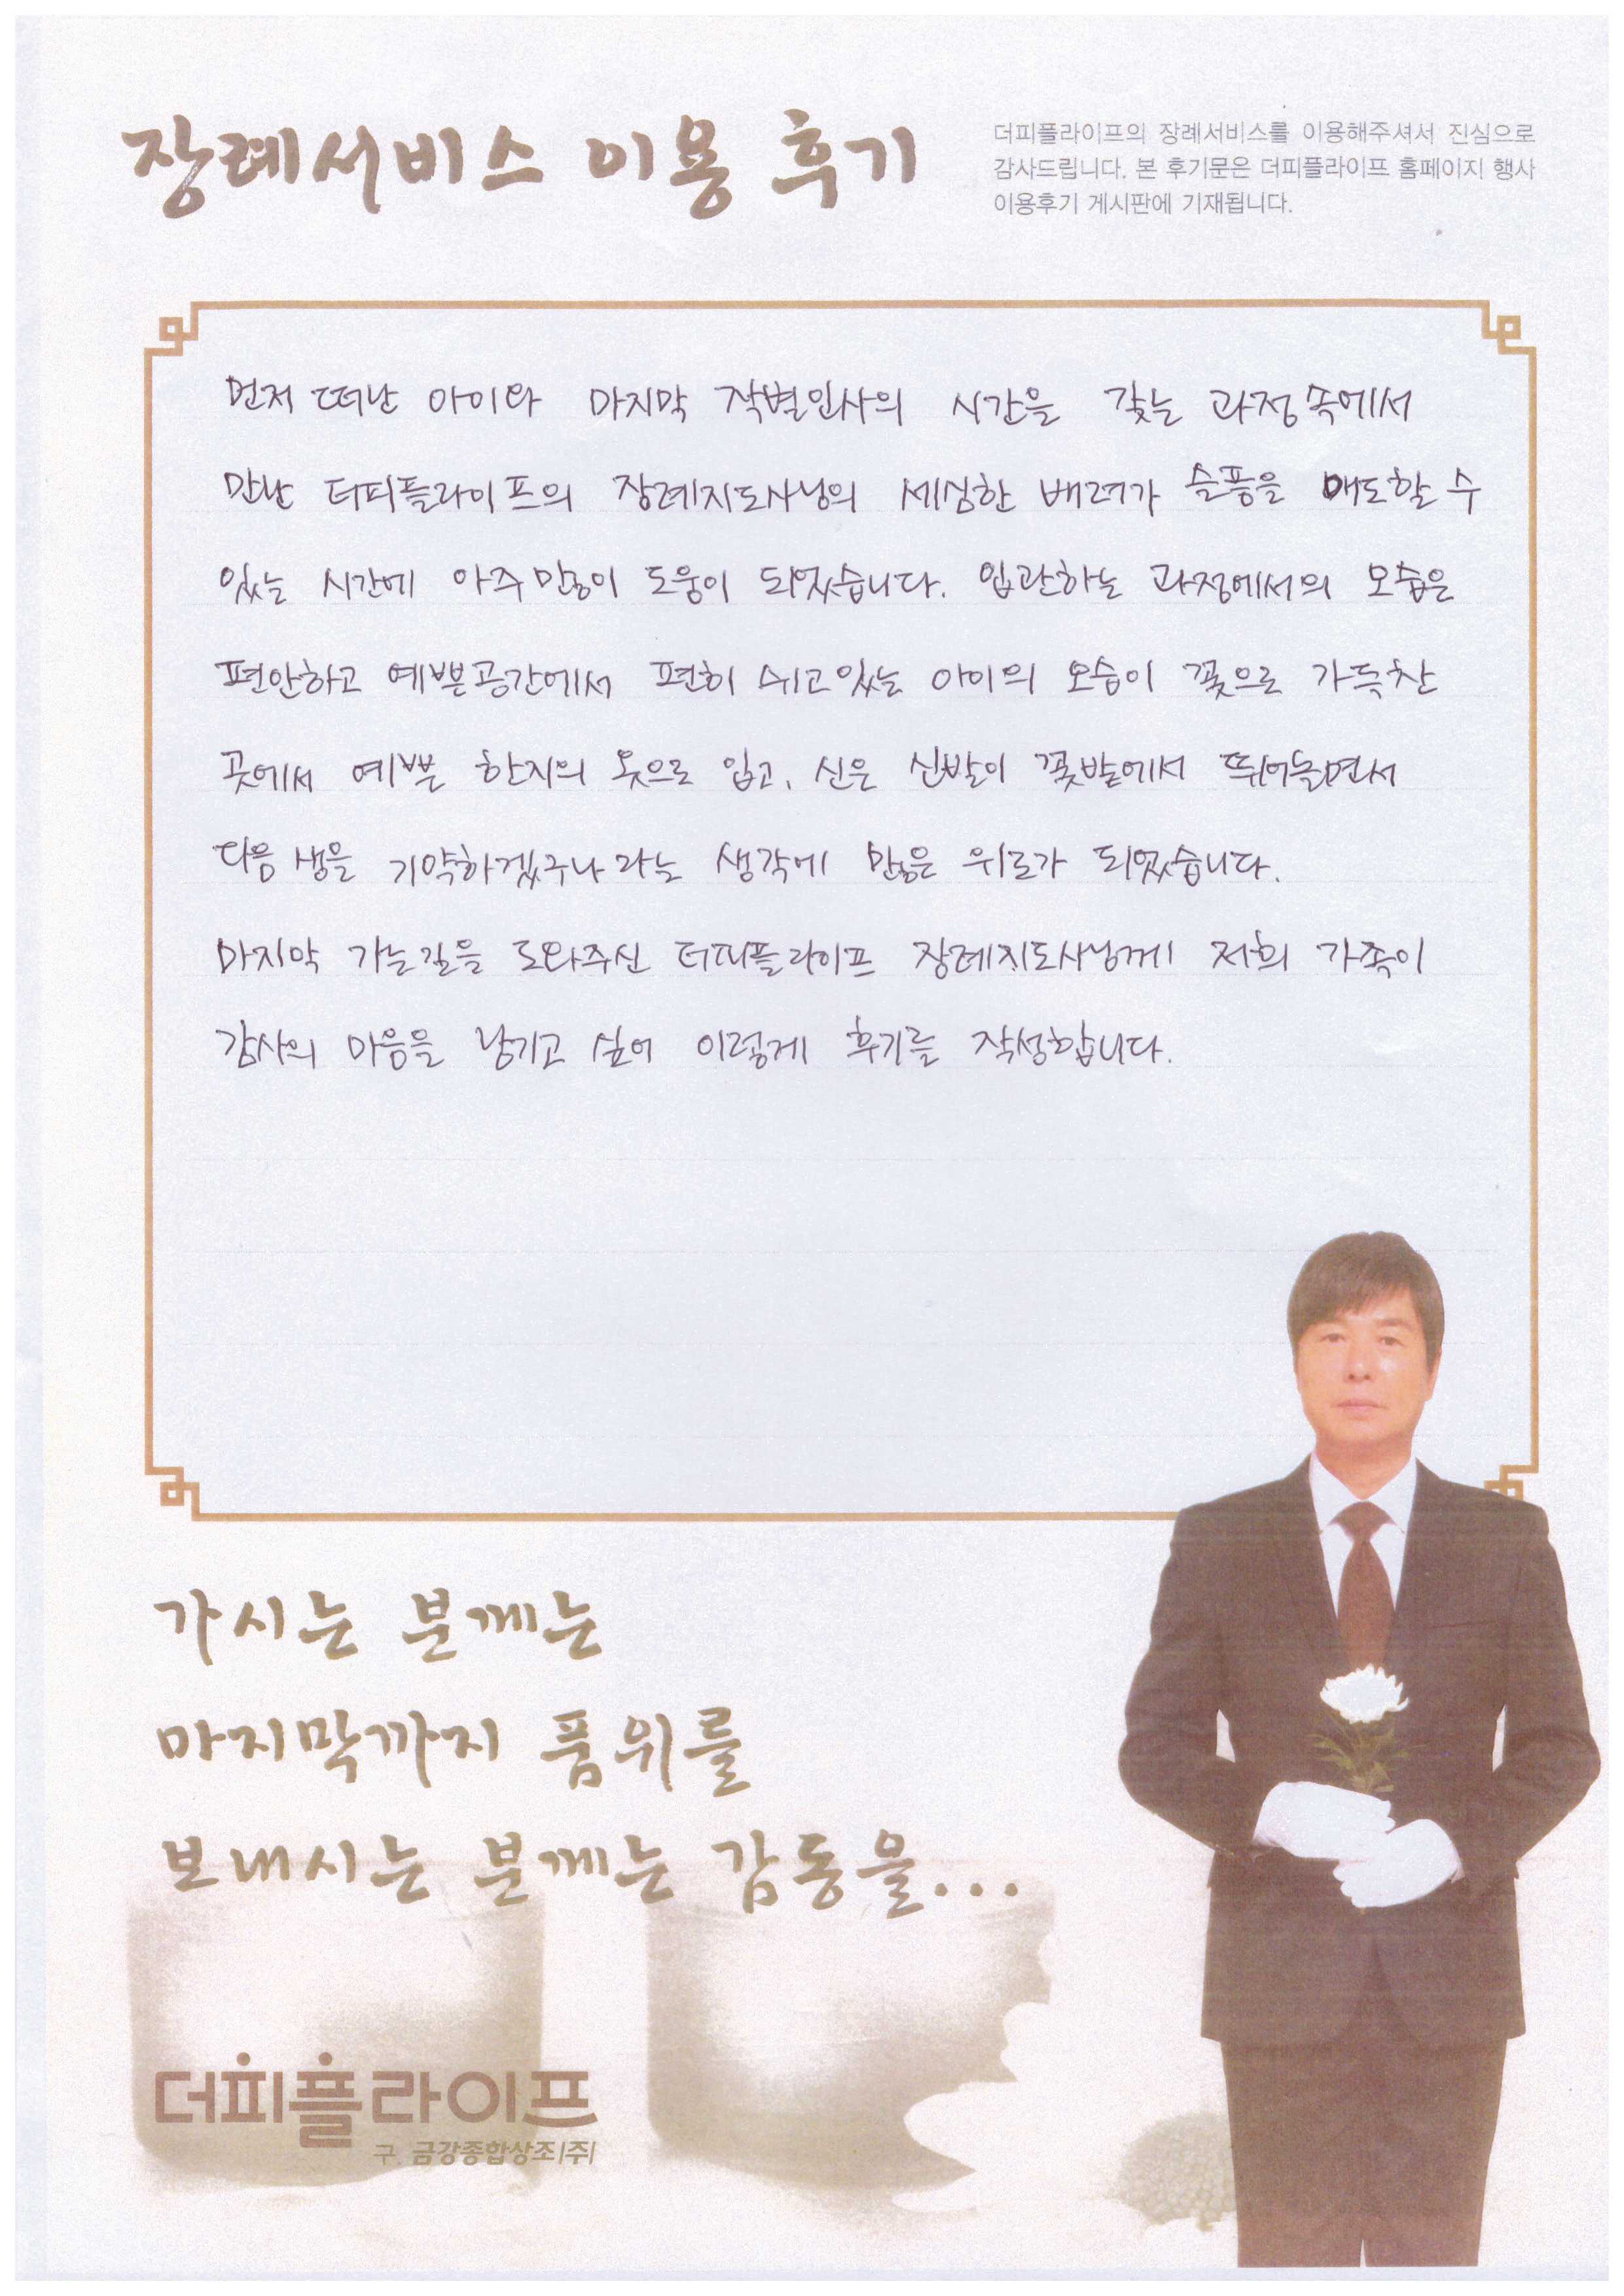 장례서비스 이용 후기
더피플라이프의 장례서비스를 이용해주셔서 진심으로
감사드립니다. 본 후기문은 더피플라이프 홈페이지 행사
이용후기 게시판에 기재됩니다.
먼저 떠난 아이와 마지막 작별인사의 시간을 갖는 과정속에서
만난 더피플라이프의 장례지도사님의 세심한 배려가 슬픔을 애도할 수
있는 시간에 아주 많이 도움이 되었습니다. 입관하는 과정에서의 모습은
편안하고 예쁜공간에서 편히 쉬고있는 아이의 모습이 꽃으로 가득찬
곳에서 예쁜 한지의 옷으로 입고, 신은 신발이 꽃밭에서 뛰어놀면서
다음 생을 기약하겠구나 라는 생각에 많은 위로가 되었습니다.
마지막 가는길을 도와주신 더피플라이프 장례지도사님께 저희 가족이
감사의 마음을 남기고 싶어 이렇게 후기를 작성합니다.
가시는 분께는
마지막까지 품위를
보내시는 분께는 감동을...
더피플라이프
구. 금강종합상조(주)